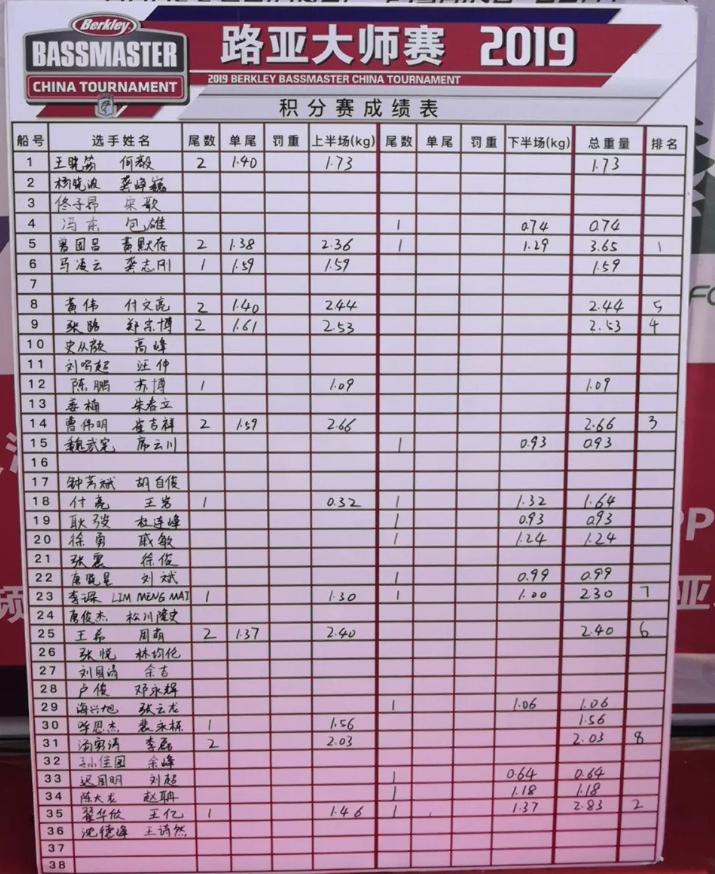 Berkley
BASSMASTER
CHINA TOURNAMENT
路亚大师赛 2019
2019 BERKLEY BASSMASTER CHINA TOURNAMENT
积分赛成绩表
船号 选手姓名 尾数 单尾 罚重 上半场(kg) 尾数 单尾 罚重 下半场(kg) 总重量 排名
1 王晓 何毅 2 1.40 1.73 1.73
2 杨晓波 龚峰巍
3 佟子昂 宋歌
4 冯东 包雄 1 0.74 0.74
5 曾国吕 黄默存 2 1.38 2.36 1 1.29 3.65 1
6 马凌云 龚志刚 1 1.59 1.59 1.59
7
8 黄伟 付文亮 2 1.40 2.44 2.44 5
9 张路 郑宗博 2 1.61 2.53 2.53 4
10 史从 高峰
11 刘鸣超 汪仲
12 陈鹏 苏博 1 1.09 1.09
13 姜楠 朱春立
14 曹伟明 崔吉祥 2 1.59 2.66 2.66 3
15 魏武 席云川 1 0.93 0.93
16
17 钟芳斌 胡自俊
18 付亮 王岩 1 0.32 1 1.32 1.64
19 耿骏 杜连峰 1 0.93 0.93
20 徐勇 戚敏 1 1.24 1.24
21 张震 徐俊
22 唐晓星 刘斌 1 0.99 0.99
23 李 LIM MENG MAI 1 1.30 1 1.00 2.30 7
24 唐俊杰 松川隆史
25 王希 周萌 2 1.37 2.40 2.40 6
26 张悦 林均伦
27 刘国清 余吉
28 卢俊 邓永辉
29 海兴旭 张云龙 1 1.06 1.06
30 恩杰 裴永栋 1 1.56 1.56
31 李磊 2 2.03 2.03 8
32 孙佳圆 余峰
33 迟周明 刘超 1 0.64 0.64
34 陈大龙 赵聃 1 1.18 1.18
35 翟华欣 王亿 1 1.46 1 1.37 2.83 2
36 沈德峰 王诗然
37
38